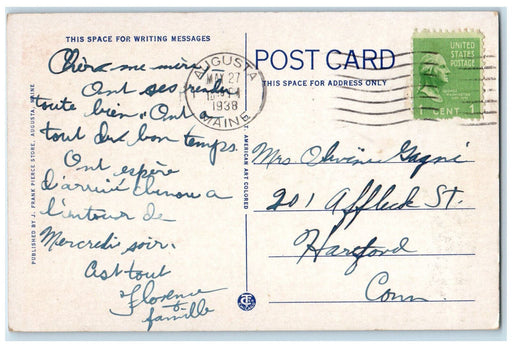 THIS SPACE FOR WRITING MESSAGES
Chère me mère
Ont ses rendu
toute bien. Ont a
tout dux bon temps.
Ont espère
d'arrivé chenou a
l'entour de
Mercredi soir.
Cest tout
Florence
& famille
PUBLISHED BY J. FRANK PIERCE STORE, AUGUSTA, MAINE
AMERICAN ART COLORED
AUGUSTA
MAY 27
1938
MAINE
POST CARD
THIS SPACE FOR ADDRESS ONLY
UNITED
STATES
POSTAGE
1 CENT 1
Mrs Olivine Gagné
201 Affleck St.
Hartford
Conn